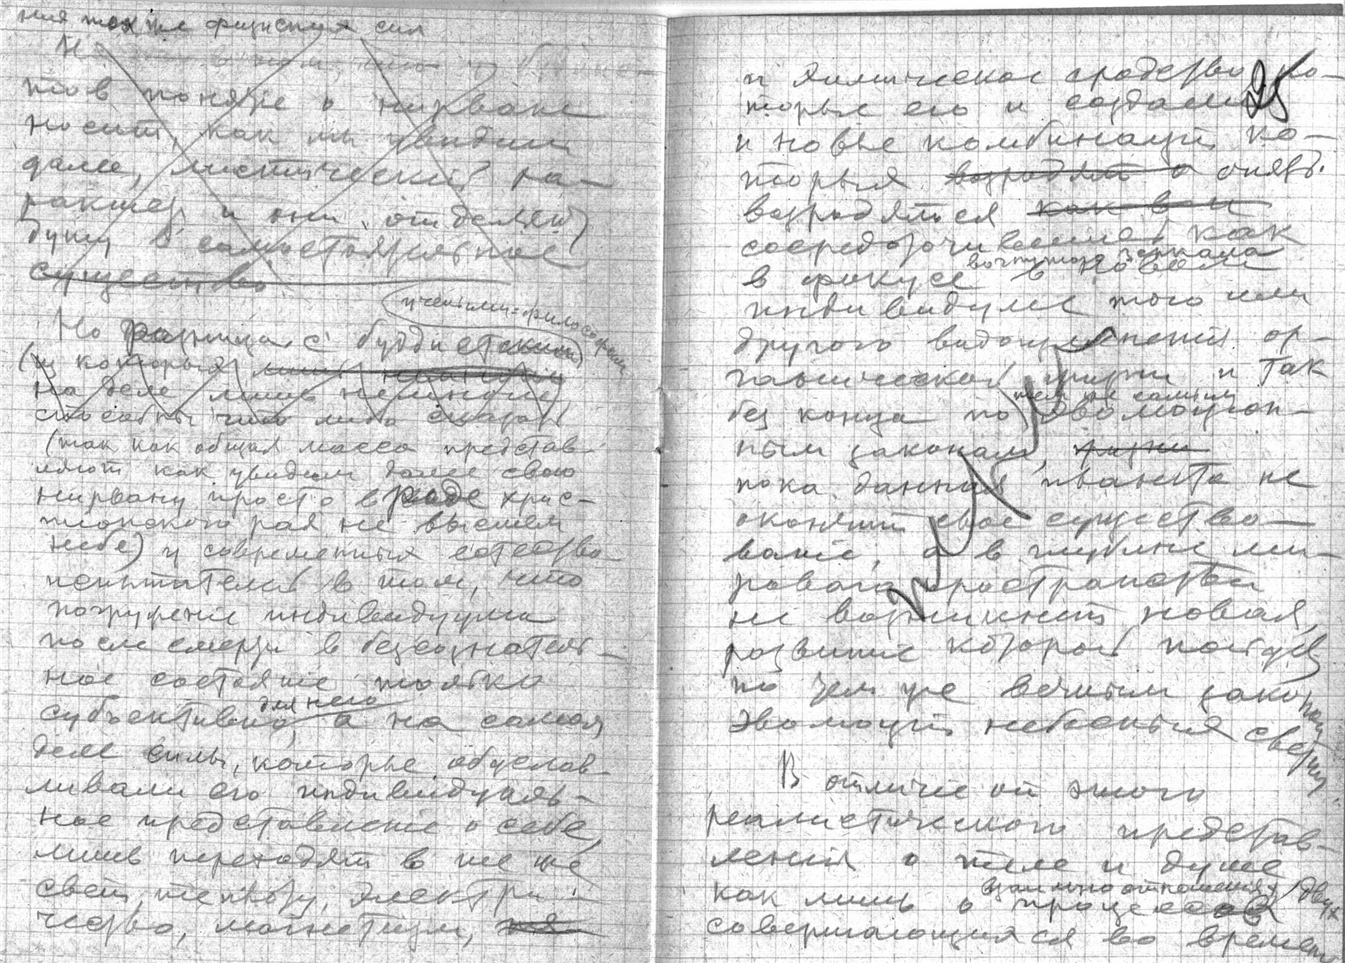 ния тех же физических сил
Н
тов понятие о нирване
носит, как мы увидим
далее, мистический ха-
рактер и они отделяют
душу в самостоятельное
существо.
учеными-философами
Но разница с буддистами
(из которых лишь немногие
на деле лишь немногие
способны что либо сказать
(так как общая масса представ-
ляют как увидим далее свою
нирвану просто в роде хрис-
тианского рая на высшем
небе) и современных естество-
испытателей в том, что
погружение индивидуума
после смерти в безсознатель-
ное состояние только
для него
субъективно, а на самом
деле силы, которые обуслав-
ливали его индивидуаль-
ное представление о себе,
лишь переходят в те же
свет, теплоту, электри-
чество, магнетизм,
25
и химическое сродство ко-
торые его и создали
и новые комбинации ко-
торыя возродят а опять
возродятся
сосредоточившись как
вогнутого зеркала
в фокусе в новом
индивидууме того или
другого видоизменения ор-
ганической жизни и так
тем же самым
без конца по эволюцион-
ным законам, жизни
пока данная планета не
окончит свое существо-
вание, а в глубине ми-
рового пространства
не возникнет новая,
развитие которой пойдет
по тем же вечным законам
эволюции небесных светил.
В отличие от этого
реалистического представ-
ления о теле и душе
взаимноотношениях двух
как лишь о процессов
совершающихся во времени